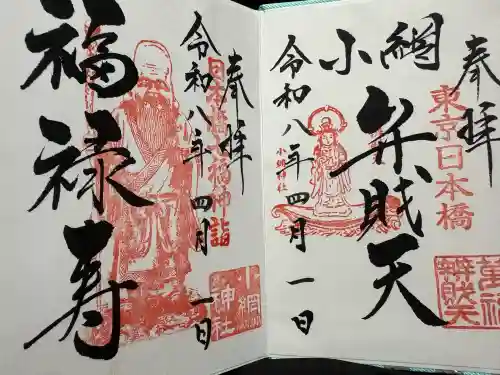 奉拝
東京日本橋
小網
弁財天
小網神社
萬福
辨財天
令和八年四月一日
奉拝
日本橋七福神詣
福禄寿
小網
神社
令和八年四月一日